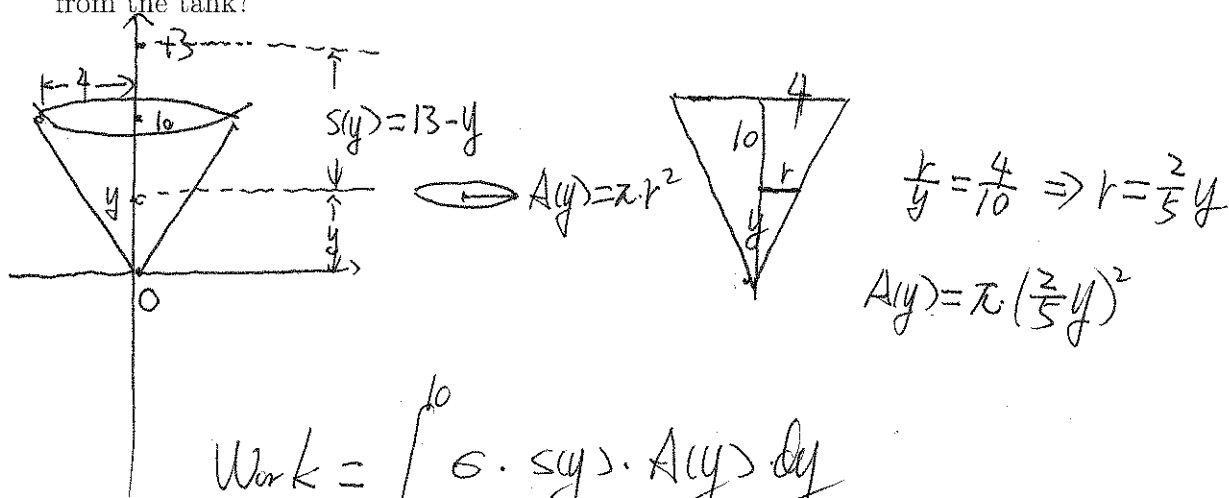 from the tank?
13
4
10
s(y) = 13 - y
y
y
0
A(y) = π·r²
4
10
r
y
r/y = 4/10 ⇒ r = 2/5 y
A(y) = π·(2/5 y)²
Work = ∫ 10 σ · s(y) · A(y) · dy